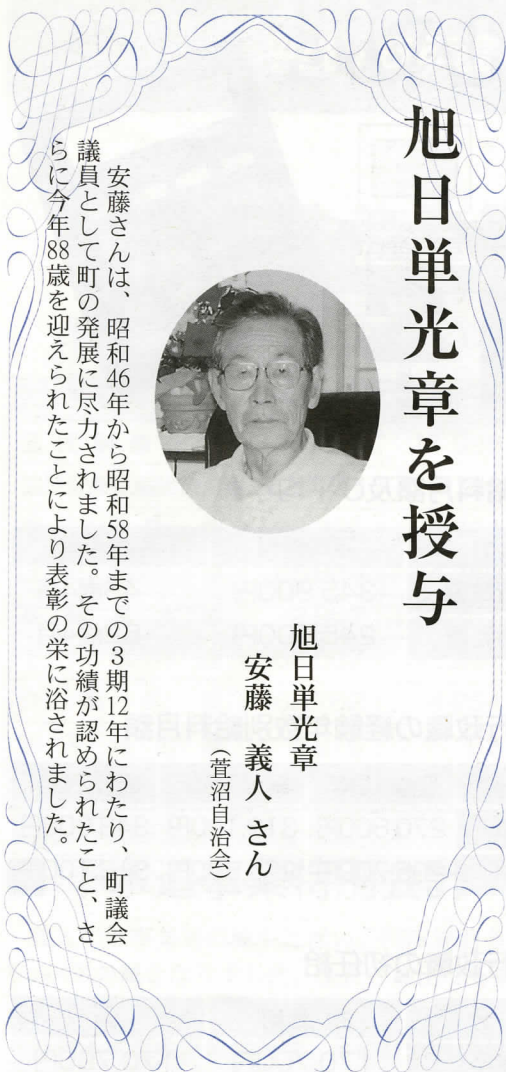 旭日単光章を授与
旭日単光章
安藤 義人 さん
（萱沼自治会）
安藤さんは、昭和46年から昭和58年までの3期12年にわたり、町議会
議員として町の発展に尽力されました。その功績が認められたこと、さ
らに今年88歳を迎えられたことにより表彰の栄に浴されました。